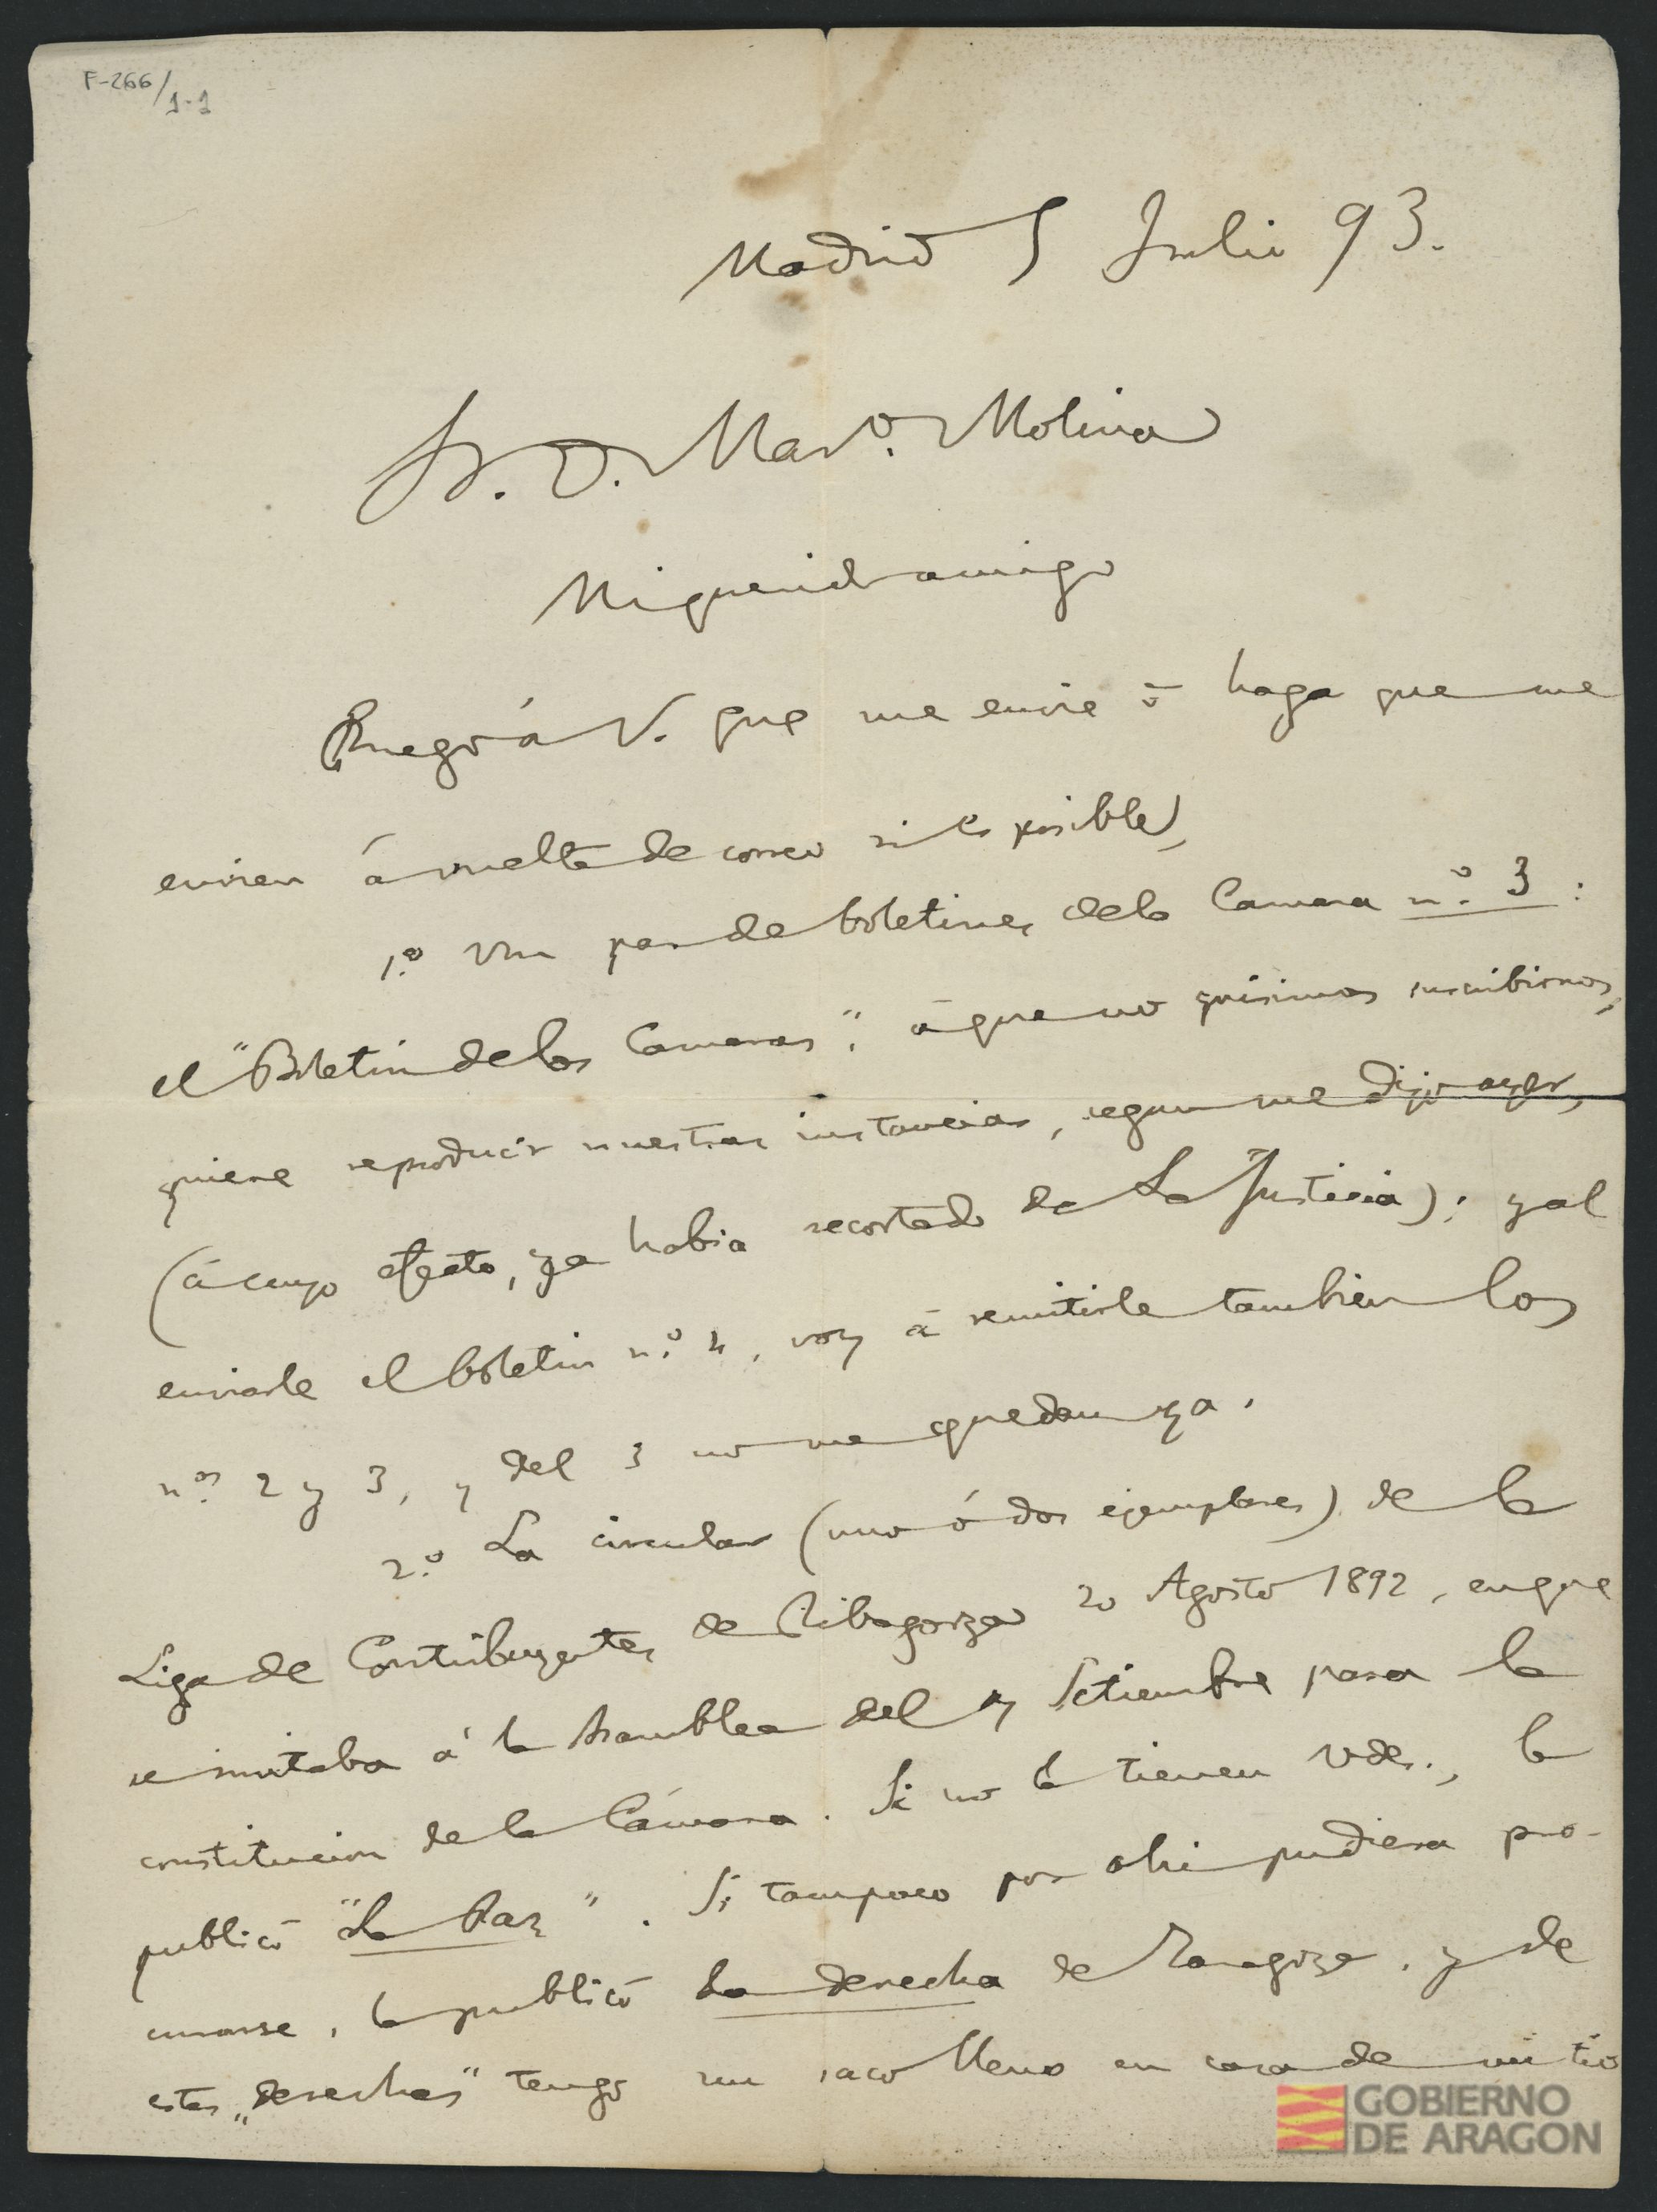 F-266/1-1
Madrid 5 Julio 93.
Sr. D. Marº. Molina
Mi querido amigo
Ruego á V. que me envie ó haga que me
envien á vuelta de correo si es posible,
1.º Un par de boletines de la Camara n.º 3:
el "Boletin de las Camaras", á que no quisimos suscribirnos,
quiere reproducir nuestras instancias, segun me dijo ayer,
(á cuyo efecto, ya habia recortado de La Justicia); y al
enviarle el boletin n.º 4, voy á remitirle tambien los
n.os 2 y 3, y del 3 no me quedan ya.
2.º La circular (uno ó dos ejemplares) de la
Liga de Contribuyentes de Ribagorza 20 Agosto 1892, en que
se invitaba á la Asamblea del 7 Setiembre para la
constitucion de la Cámara. Si no la tienen Vdes., la
publicó "La Paz". Si tampoco por ahi pudiera pro-
curarse, la publicó La derecha de Zaragoza, y de
estas "derechas" tengo un saco lleno en casa de mi tio
GOBIERNO
DE ARAGON